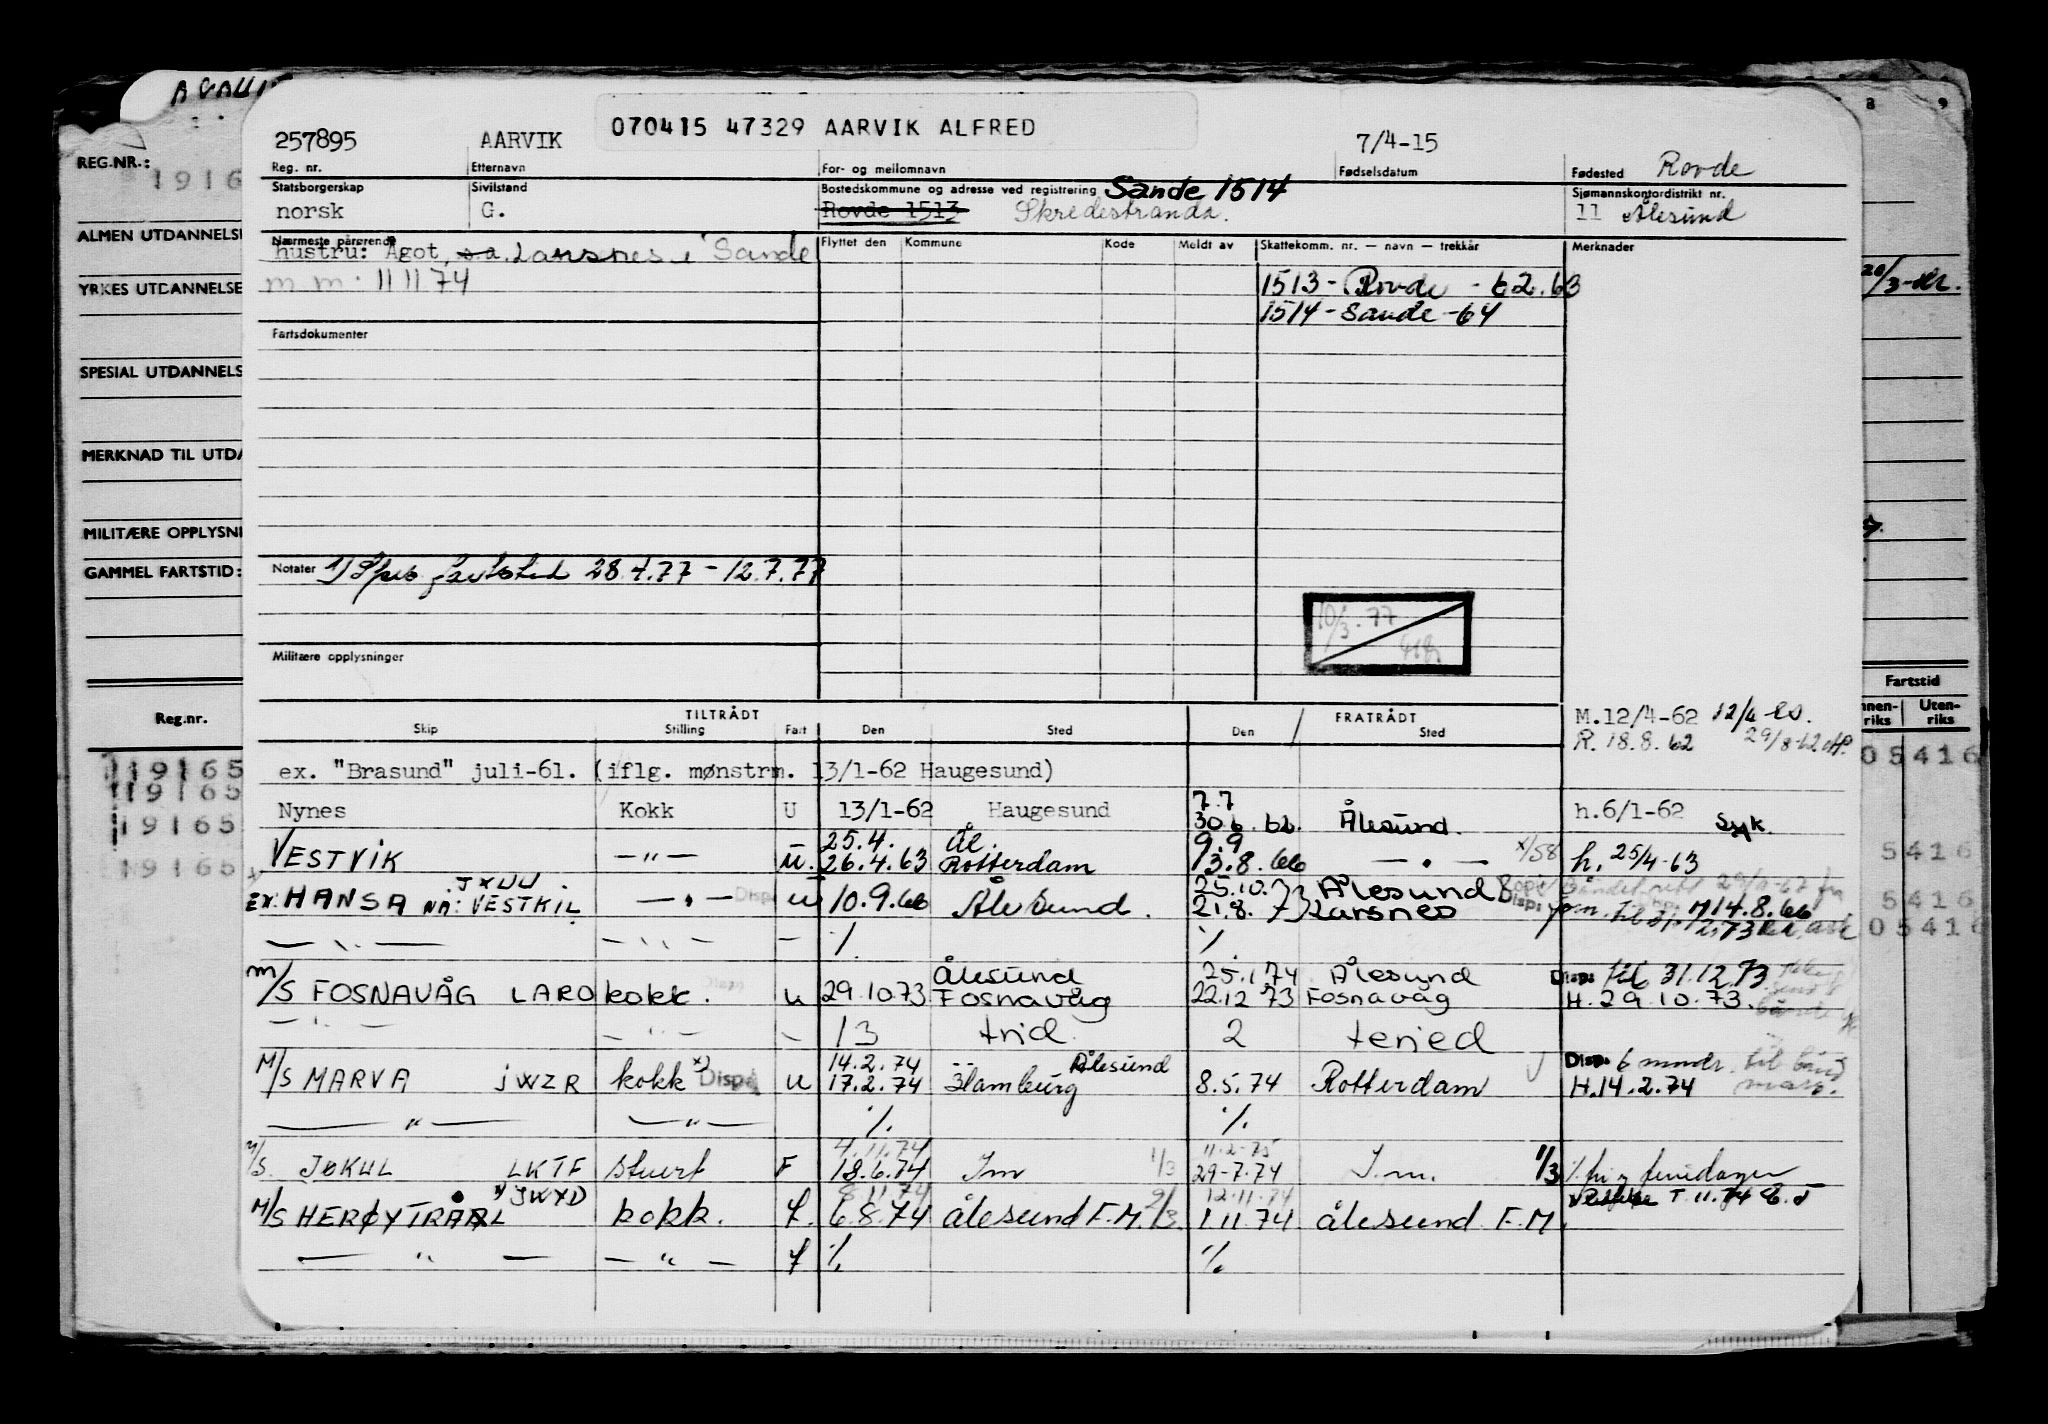 REG.NR.:
1916
ALMEN UTDANNELSE
YRKES UTDANNELSE
SPESIAL UTDANNELS
MERKNAD TIL UTDA
MILITÆRE OPPLYSNI
GAMMEL FARTSTID:
Reg.nr.
119165
119165
19165
19165
8 9
Fartstid
nnen-riks Uten-riks
05416
5416
5416
05416
070415 47329 AARVIK ALFRED
257895 AARVIK 7/4-15 Rovde
Reg. nr. Etternavn For- og mellomnavn Fødselsdatum Fødested
Statsborgerskap Sivilstand Bostedskommune og adresse ved registrering Sande 1514 Sjømannskontordistrikt nr.
norsk G. Rovde 1513 Skredestranda. 11 Ålesund
Nærmeste pårørende Flyttet den Kommune Kode Meldt av Skattekomm. nr. — navn — trekkår Merknader
hustru: Agot, s.a. Larsnes i Sande
m.m. 11 11 74
1513 - Rovde - 62.63
1514 - Sande - 64
Fartsdokumenter
Notater 1) Spes fartstid 28.4.77 - 12.7.77
10/3.77
Militære opplysninger
TILTRÅDT FRATRÅDT M.12/4-62 12/4-
Skip Stilling Fart Den Sted Den Sted R. 18.8.62 29/8-62
ex. "Brasund" juli-61. (iflg. mønstrm. 13/1-62 Haugesund)
7.7
Nynes Kokk U 13/1-62 Haugesund 30.6.62. Ålesund. h.6/1-62 Syk.
25.4. Ål. 9.9
VESTVIK —"— u. 26.4.63 Rotterdam 13.8.66 — " — x/58 h. 25/4-63
JXUU 25.10.73 Ålesund
EX: HANSA NÅ: VESTKIL — " — Disp. u 10.9.66 Ålesund. 21.8.73 Larsnes Disp: 14.8.66
— " — — " — — ·/. ·/.
Ålesund 25.1.74 Ålesund Disp: til 31.12.73
M/S FOSNAVÅG LARO kokk. u 29.10.73 Fosnavåg 22.12 73 Fosnavåg H.29.10.73.
— " — — " — — 13 trid. 2 teried
14.2.74 Ålesund Disp. 6 mndr.
M/S MARVA JWZR kokk x) Disp. u 17.2.74 Hamburg 8.5.74 Rotterdam H.14.2.74
— " — — " — ·/. ·/.
4.11.74 11.2-75
M/S. JØKUL LKTF Stuert F 18.6.74 I.m 1/3 29-7.74 I.m. 1/3
JWXD 8.11.74 12.11.74
M/S HERØYTRÅL kokk. f. 6.8.74 Ålesund F.M. 2/3. 1.11.74 Ålesund F.M.
— " — — " — f ·/. ·/.